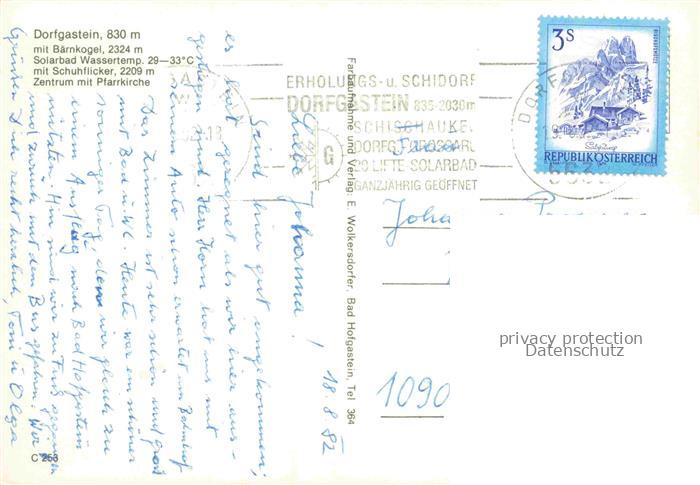 Dorfgastein, 830 m
mit Bärnkogel, 2324 m
Solarbad Wassertemp. 29—33°C
mit Schuhflicker, 2209 m
Zentrum mit Pfarrkirche
ERHOLUNGS- u. SCHIDORF
DORFGASTEIN 835-2030m
SCHISCHAUKEL
DORFG. GROSSARL
LIFTE SOLARBAD
GANZJÄHRIG GEÖFFNET
G
3S
REPUBLIK ÖSTERREICH
Farbaufnahme und Verlag: E. Wolkersdorfer, Bad Hofgastein, Tel. 364
18.8.82
Liebe Johanna!
Sind hier gut angekommen,
es hat geregnet als wir hier aus-
gestiegen sind. Herr Horn hat uns mit
seinem Auto schon erwartet am Bahnhof
Das Zimmer ist sehr schön und groß
mit Bad u. Kl. Heute war ein schöner
sonniger Tag, wir gleich zu
einem Ausflug nach Bad Hofgastein
nützten. Hin sind wir zu Fuß gegangen
und zurück mit dem Bus gefahren. Wir
Grüßen Dich recht herzlich, Toni u Olga
Joha
1090
privacy protection
Datenschutz
C 258